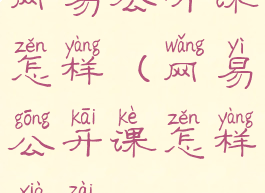 网易公开课
zěn yàng wǎng yì
怎样（网易
gōng kāi kè zěn yàng
公开课怎样
xià zài